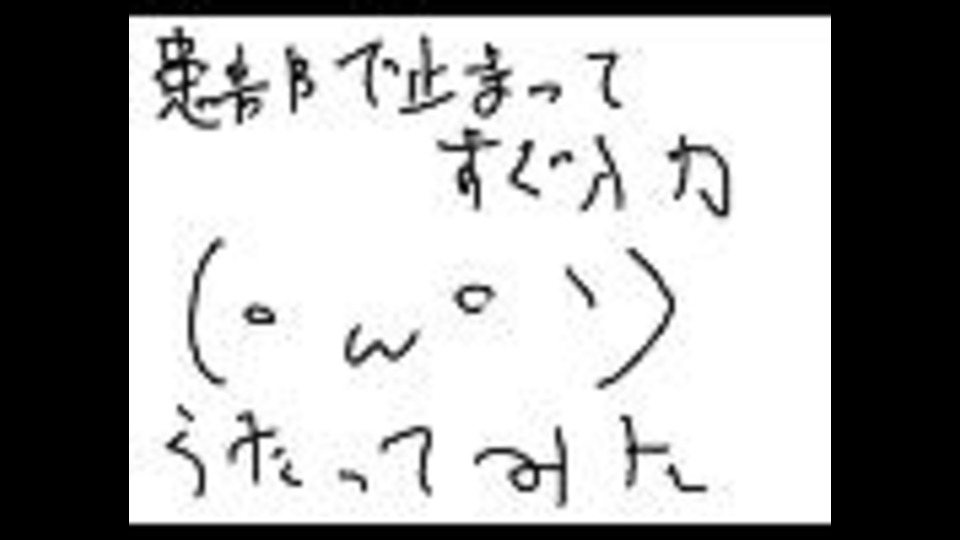 患部で止まって
すぐ入力
(°ω°｀)
うたってみた